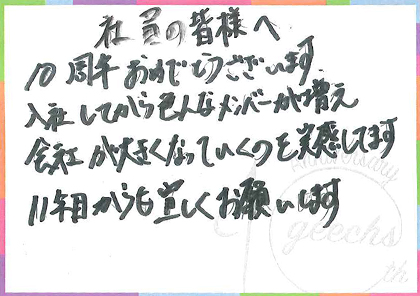 社員の皆様へ
10周年おめでとうございます
入社してから色んなメンバーが増え
会社が大きくなっていくのを実感してます
11年目からも宜しくお願いします
Anniversary
geechs
th